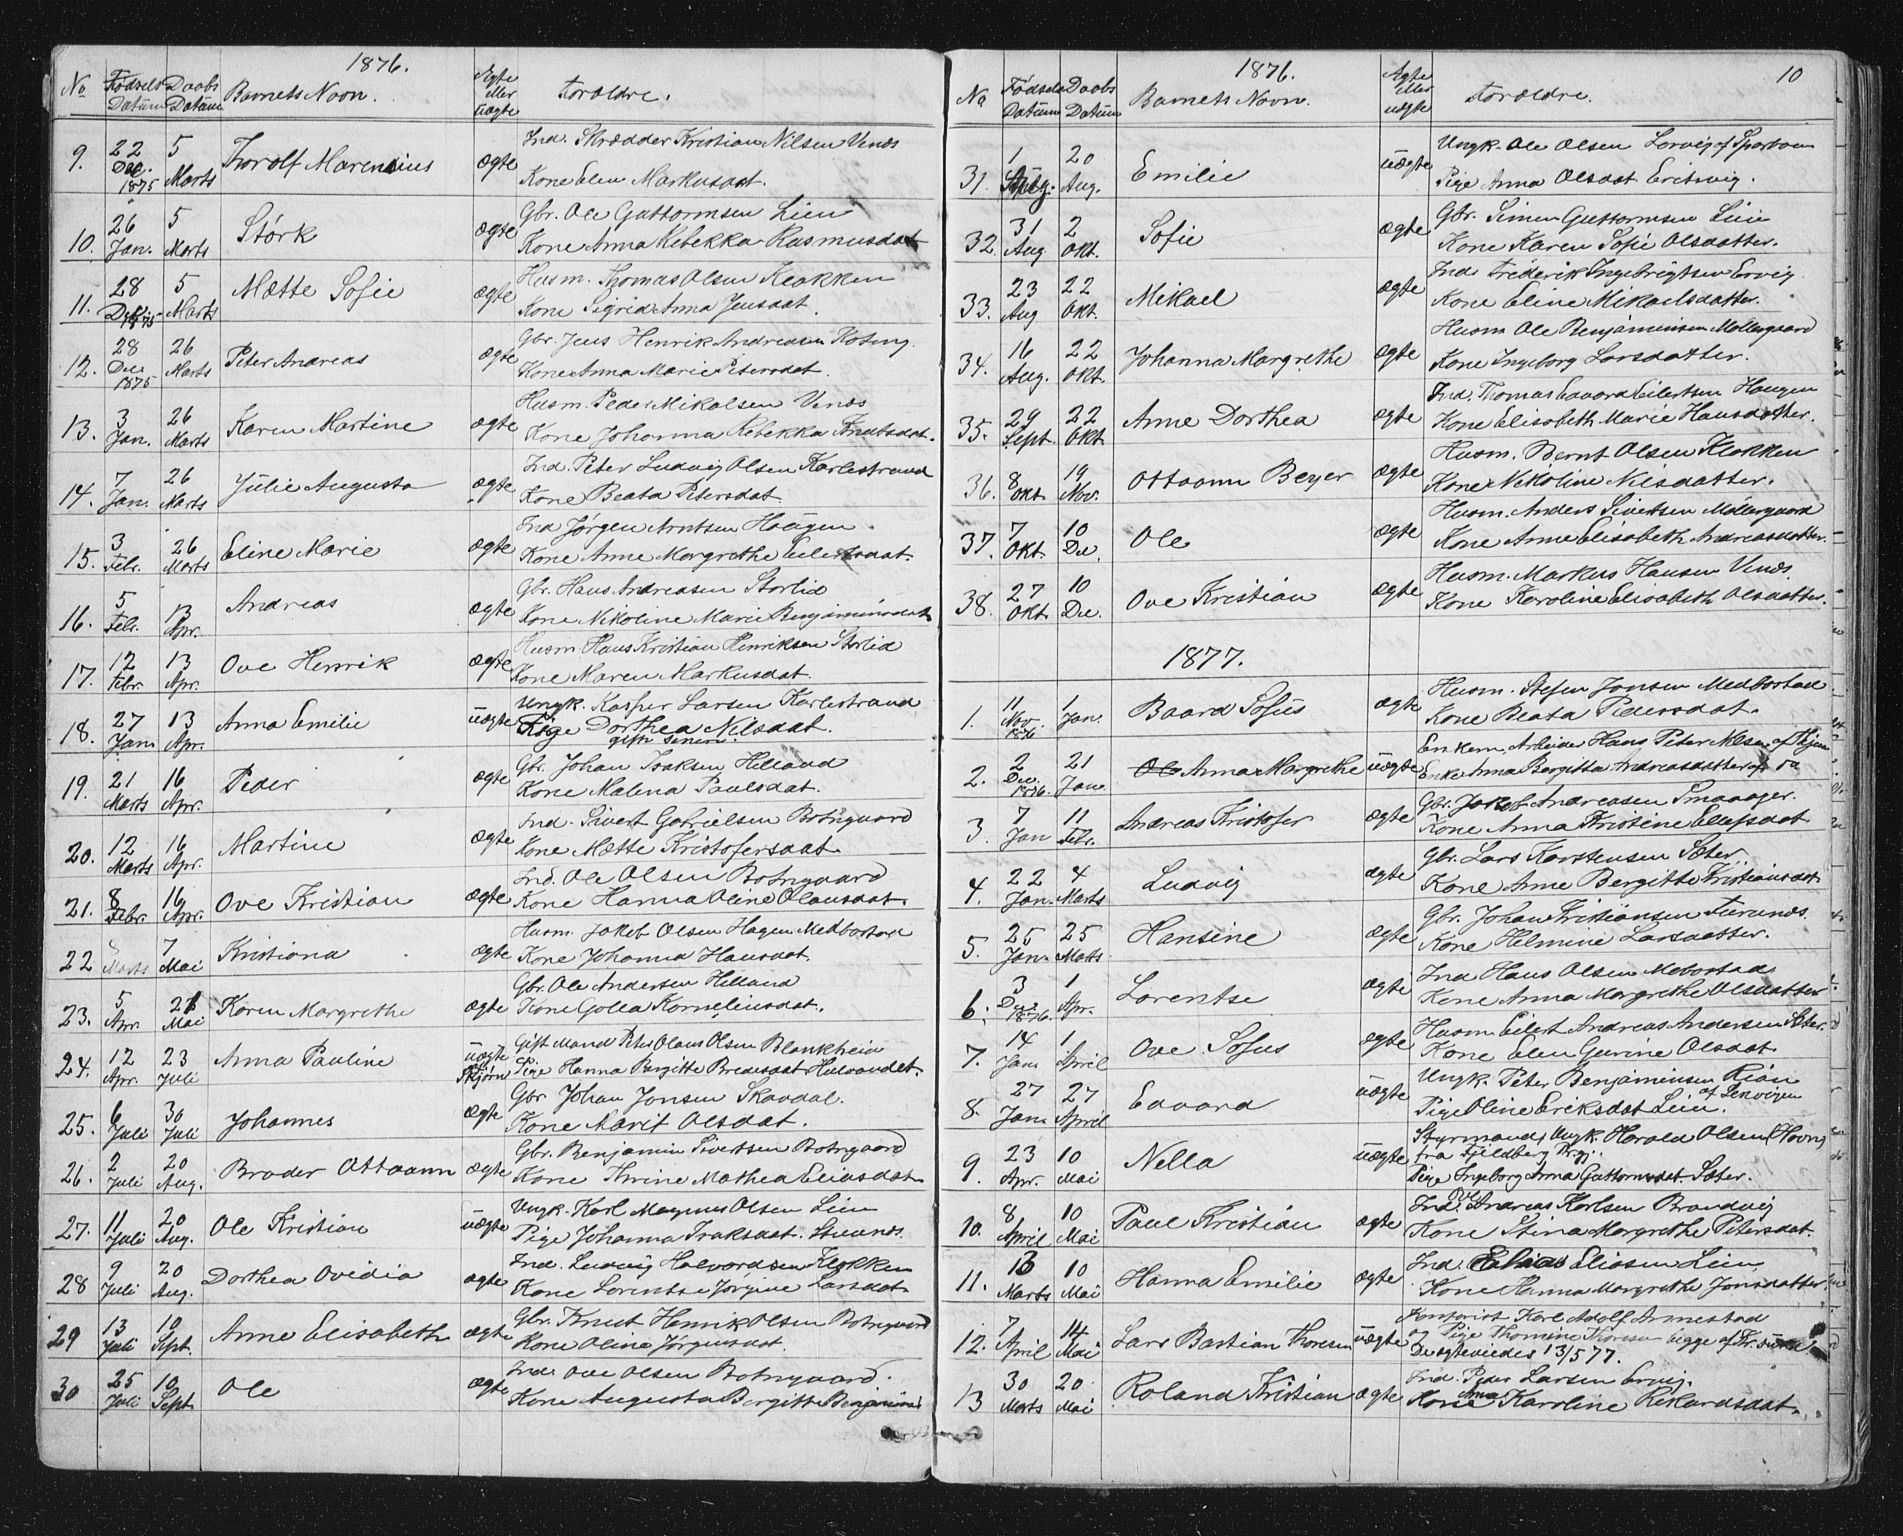 1876.
No Fødsels Datum Daabs Datum Barnets Navn. Ægte eller uægte Forældre.
9. 22 Dec. 1875 5 Marts Torolf Marensius ægte Ind. Skrædder Kristian Nilsen Venæs
Kone Elen Markusdat.
10. 26 Jan. 5 Marts Størk ægte Gbr. Ole Guttormsen Lien
Kone Anna Rebekka Rasmusdat
11. 28 Dec. 1875 5 Marts Mætte Sofie ægte Husm. Thomas Olsen Klokken
Kone Sigrid Anna Jensdat.
12. 28 Dec 1875 26 Marts Peter Andreas ægte Gbr. Jens Henrik Andreasen
Kone Anna Marie Petersdat.
13. 3 Jan. 26 Marts Karen Martine ægte Husm. Peder Mikalsen Venæs
Kone Johanna Rebekka
14. 7 Jan. 26 Marts Julie Augusta ægte Ind. Peter Ludvig Olsen Karlestrand
Kone Beata Petersdat.
15. 3 Febr. 26 Marts Eline Marie ægte Ind Jørgen Arntsen Haugen.
Kone Anne Margrethe Eilertsdat.
16. 5 Febr. 13 Apr. Andreas ægte Gbr. Hans Andreasen Storlid
Kone Nikoline Marie Benjaminsdat
17. 12 Febr. 13 Apr. Ove Henrik ægte Husm Hans Kristian Henriksen Storlid
Kone Maren Markusdat.
18. 27 Jan. 13 Apr. Anna Emilie uægte Ungk. Kasper Larsen Karlestrand
Pige Dorthea Nilsdat.
gift senere.
19. 21 Marts 16 Apr. Peder ægte Gbr. Johan Isaksen Helland
Kone Malena Paulsdat.
20. 12 Marts 16 Apr. Martine ægte Ind. Sivert Gabrielsen Botngaard
Kone Mætte Kristofersdat.
21. 8 Febr. 16 Apr. Ove Kristian ægte Ind. Ole Olsen Botngaard
Kone Hanna Oline Olausdat.
22 Marts 7 Mai Kristiana ægte Husm. Jakob Olsen Hagen Medbostad
Kone Johanna Hansdat.
23. 5 Apr. 21 Mai Karen Margrethe ægte Gbr. Ole Andersen Helland
Kone Golla Korneliusdat.
24. 12 Apr. 23 Juli Anna Pauline uægte af Skjørn Gift Mand Peter Olaus Olsen Blankheia
Pige Hanna Bergitte Bredesdat Halvandet.
25. 6 Juli 30 Juli Johannes ægte Gbr Johan Jonsen Skavdal.
Kone Marit Olsdat.
26. 2 Juli 20 Aug. Broder Ottoann ægte Gbr. Benjamin Sivertsen Botngaard
Kone Trine Mathea Eliasdat.
27. 11 Juli 20 Aug. Ole Kristian uægte Ungk. Karl Magnus Olsen Lien
Pige Johanna Isaksdat.
28 9 Juli 20 Aug. Dorthea Ovidia ægte Ind. Ludvig Halvordsen Klokken
Kone Lorentse Jørgine Larsdat.
29 13 Juli 10 Sept. Anne Elisabeth ægte Gbr. Knut Henrik Olsen Botngaard
Kone Oline Jørgensdat.
30 25 Juli 10 Sept. Ole ægte Ind. Ove Olsen Botngaard.
Kone Augusta Bergitte Benjaminsd
1876. 10
No Fødsels Datum Daabs Datum Barnets Navn. Ægte eller uægte Forældre.
31. 1 Aug. 20 Aug. Emilie uægte Ungk. Ole Olsen Lorvig
Pige Anna Olsdat Ervig.
32. 31 Aug 2 Okt. Sofie ægte Gbr. Simen Guttormsen Lien
Kone Karen Sofie Olsdatter.
33. 23 Aug 22 Okt. Mikael ægte Ind Frederik Ingebrigtsen Ervig
Kone Eline Mikaelsdatter.
34. 16 Aug. 22 Okt. Johanna Margrethe ægte Husm Ole Benjaminsen Møllegaard
Kone Ingeborg Larsdatter.
35. 29 Sept. 22 Okt. Anne Dorthea ægte Ind. Thomas Edvard Eilertsen Haugen
Kone Elisabeth Marie Hansdatter.
36. 8 Okt. 19 Nov. Ottoann Beyer ægte Husm. Bernt Olsen Klokken
Kone Nikoline Nilsdatter.
37. 7 Okt. 10 Dec. Ole ægte Husm. Anders Sivertsen Møllegaard
Kone Anne Elisabeth Andreasdatter.
38. 27 Okt 10 Dec. Ove Kristian ægte Husm. Markus Hansen Venæs.
Kone Karoline Elisabeth Olsdatter.
1877.
1. 11 Nov. 1876 1 Jan. Baard Sofus ægte Husm. Stefen Jonsen Medbostad
Kone Beata Pedersdat.
2. 2 Dec. 1876. 21 Jan. Anna Margrethe uægte Enkem. Arbeider Hans Peter Nilsen af Skjørn
Enke Anna Bergitta Andreasdatter
3. 7 Jan 11 Febr. Andreas Kristofer ægte Gbr. Jakob Andreasen Smaaager.
Kone Anna Kristine
4. 22 Jan. 4 Marts Ludvig ægte Gbr. Lars Karstensen Sæter.
Kone Anne Bergitte Kristiansdat
5. 25 Jan. 25 Marts Hansine ægte Gbr. Johan Kristiansen
Kone Helmine Larsdatter.
6. 3 Dec. 1876. 1 Apr. Lorentse ægte Ind Hans Olsen Mebostad
Kone Anna Margrethe Olsdatter
7. 14 Jan 1 April Ove Sofus ægte Husm Eilert Andreas Andersen Sæter.
Kone Elen Gurine Olsdat
8 27 Jan. 27 April Edvard uægte Ungk. Peter Benjaminsen Rian
Pige Oline Eriksdat Lien. af Leksvigen
9 23 Apr. 10 Mai Nella uægte Styrmand, Ungk. Harald Olsen Hovn
fra Fjeldberg Prgj.
Pige Ingeborg Anna Guttormsdat. Sæter.
10. 8 April 10 Mai Paul Kristian ægte Ind. Ole Andreas Karlsen Brandvig
Kone Stina Margrethe Petersdat.
11. 13 Marts 10 Mai Hanna Emilie ægte Ind. Elias Eliasen Lien
Kone Hanna Margrethe Jonsdatter
12. 7 April 14 Mai Lars Bastian Thoresen uægte Karl Adolf Armestad
og Pige Thomine Thoresen begge af
De ægteviedes 13/5 77.
13 30 Marts 20 Mai Roland Kristian ægte Ind. Peder Larsen Ervig.
Kone Anna Karoline Rikardsdat.